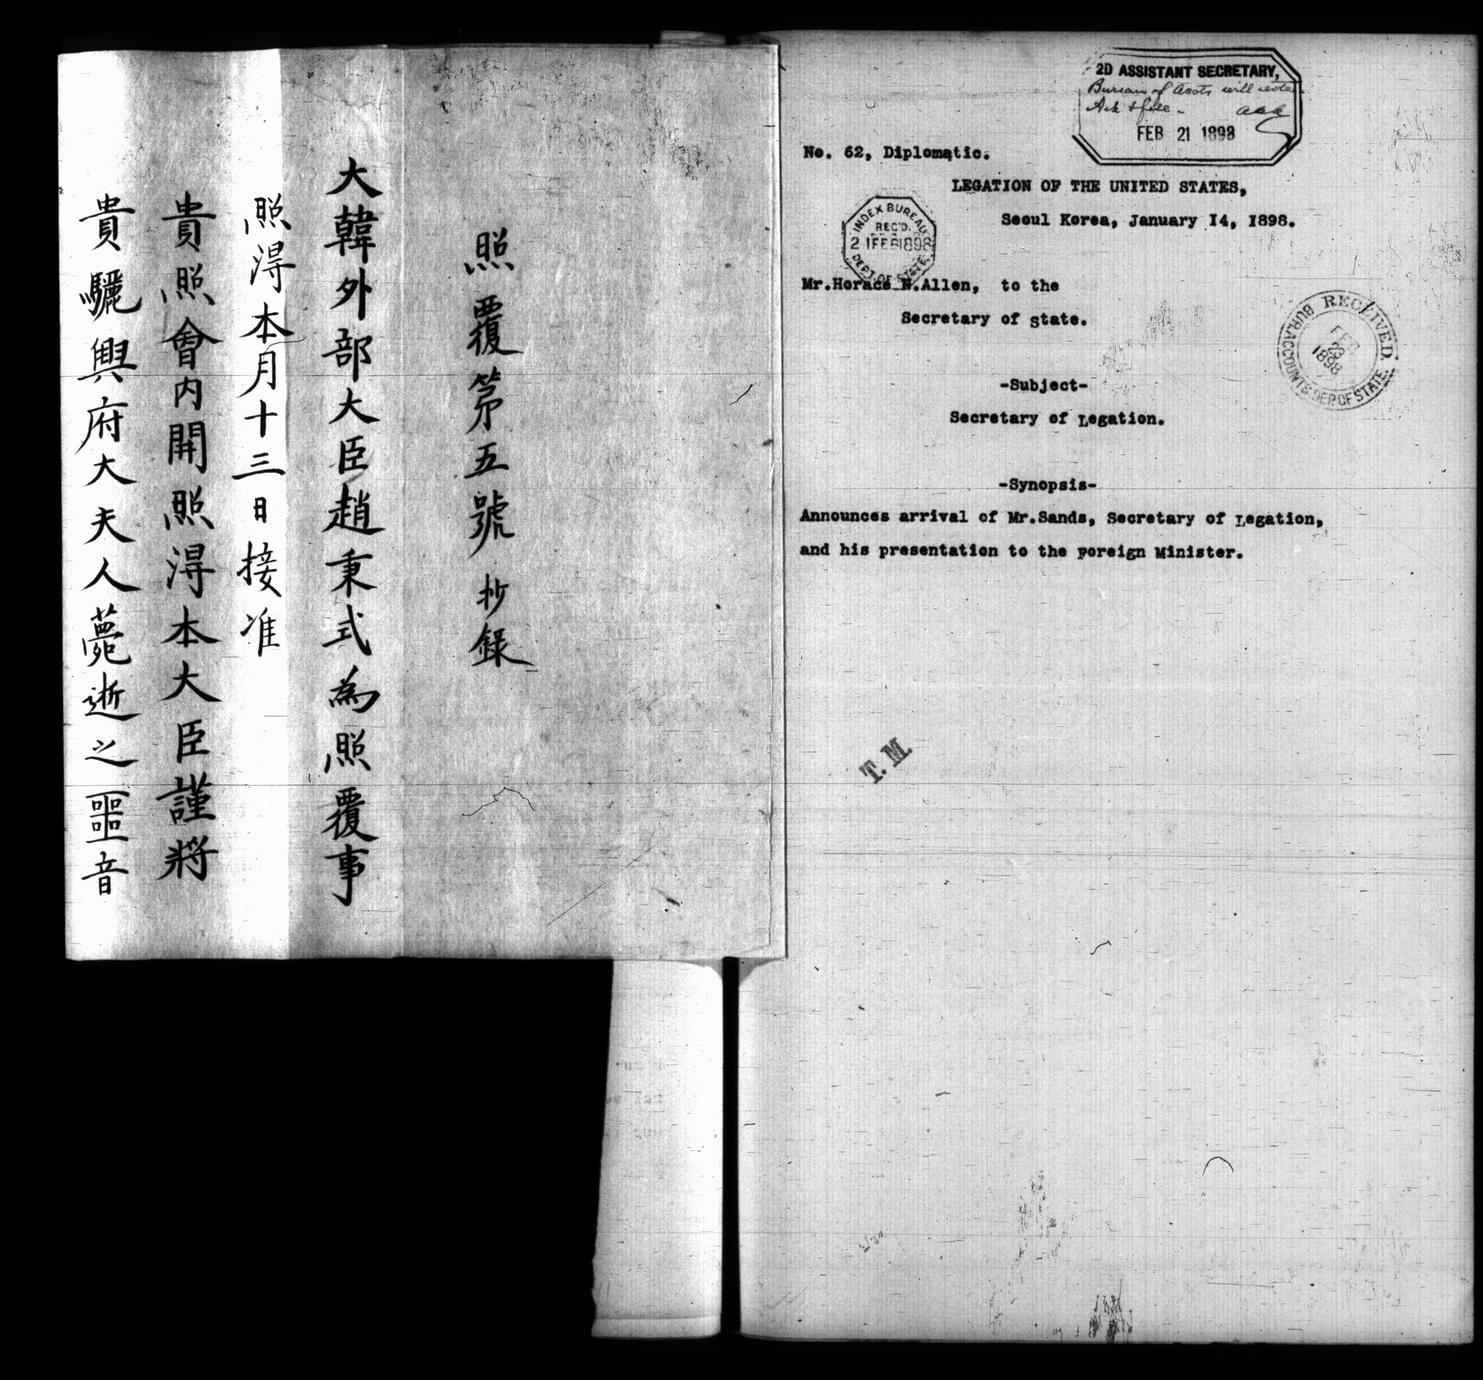 照覆第五號 抄錄
大韓外部大臣趙秉式為照覆事
照淂本月十三日接准
貴照會內開照淂本大臣謹將
貴驪興府大夫人薨逝之噩音
2D ASSISTANT SECRETARY,
Bureau of Accts will note
Ack & file - aaa
FEB 21 1898
No. 62, Diplomatic.
LEGATION OF THE UNITED STATES,
Seoul Korea, January 14, 1898.
INDEX BUREAU
REC'D.
21FEB1898
DEPT. OF STATE.
Mr.Horace N.Allen, to the
Secretary of State.
RECEIVED.
FEB
23
1898
BUR. ACCOUNTS DEP. OF STATE.
-Subject-
Secretary of Legation.
-Synopsis-
Announces arrival of Mr.Sands, Secretary of Legation,
and his presentation to the Foreign Minister.
T. M.